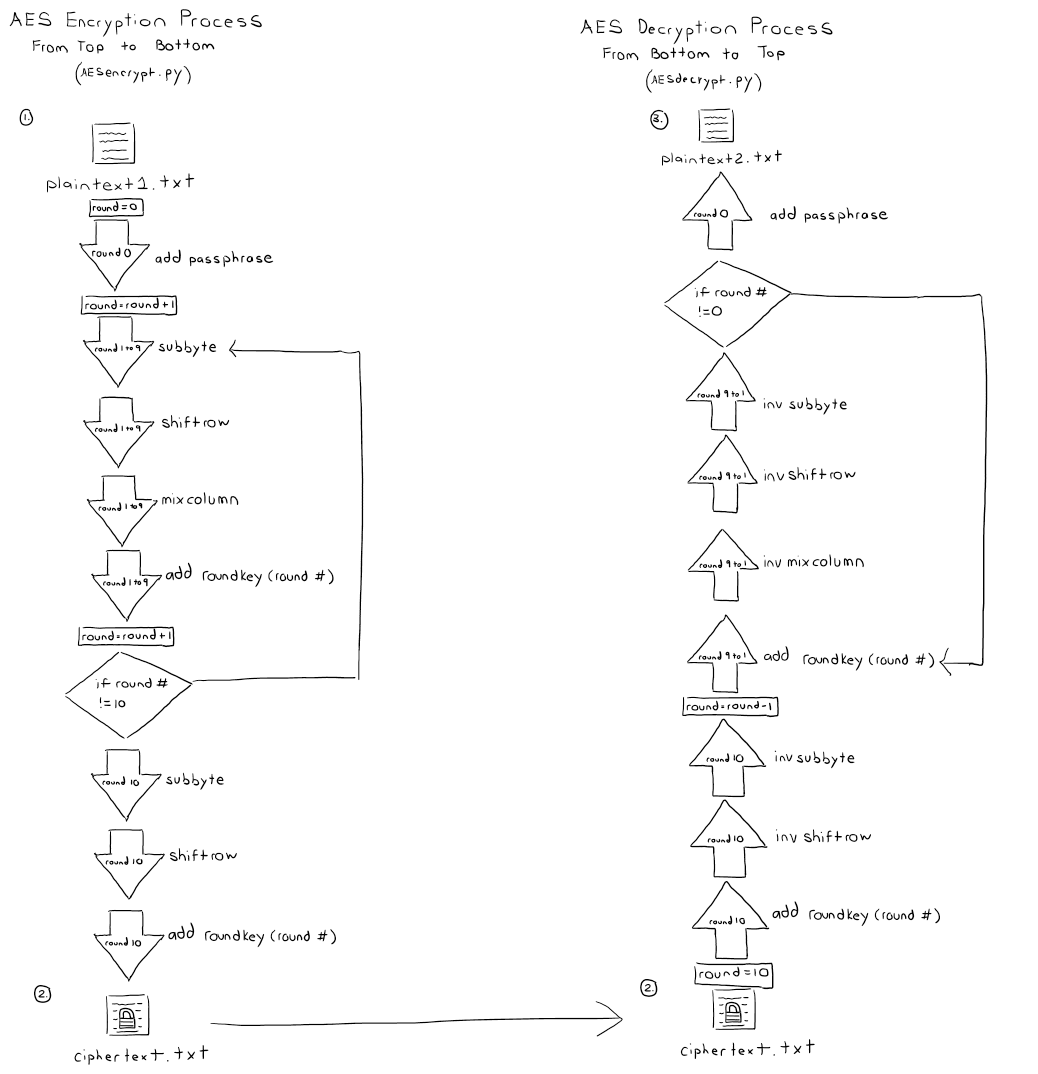 AES Encryption Process
From Top to Bottom
(AESencrypt.py)
1.
plaintext1.txt
round=0
round 0
add passphrase
round=round+1
round 1 to 9
subbyte
round 1 to 9
shiftrow
round 1 to 9
mixcolumn
round 1 to 9
add roundkey (round #)
round=round+1
if round #
!=10
round 10
subbyte
round 10
shiftrow
round 10
add roundkey (round #)
2.
ciphertext.txt
AES Decryption Process
From Bottom to Top
(AESdecrypt.py)
3.
plaintext2.txt
round 0
add passphrase
if round #
!=0
round 9 to 1
inv subbyte
round 9 to 1
inv shiftrow
round 9 to 1
inv mixcolumn
round 9 to 1
add roundkey (round #)
round=round-1
round 10
inv subbyte
round 10
inv shiftrow
round 10
add roundkey (round #)
round=10
2.
ciphertext.txt